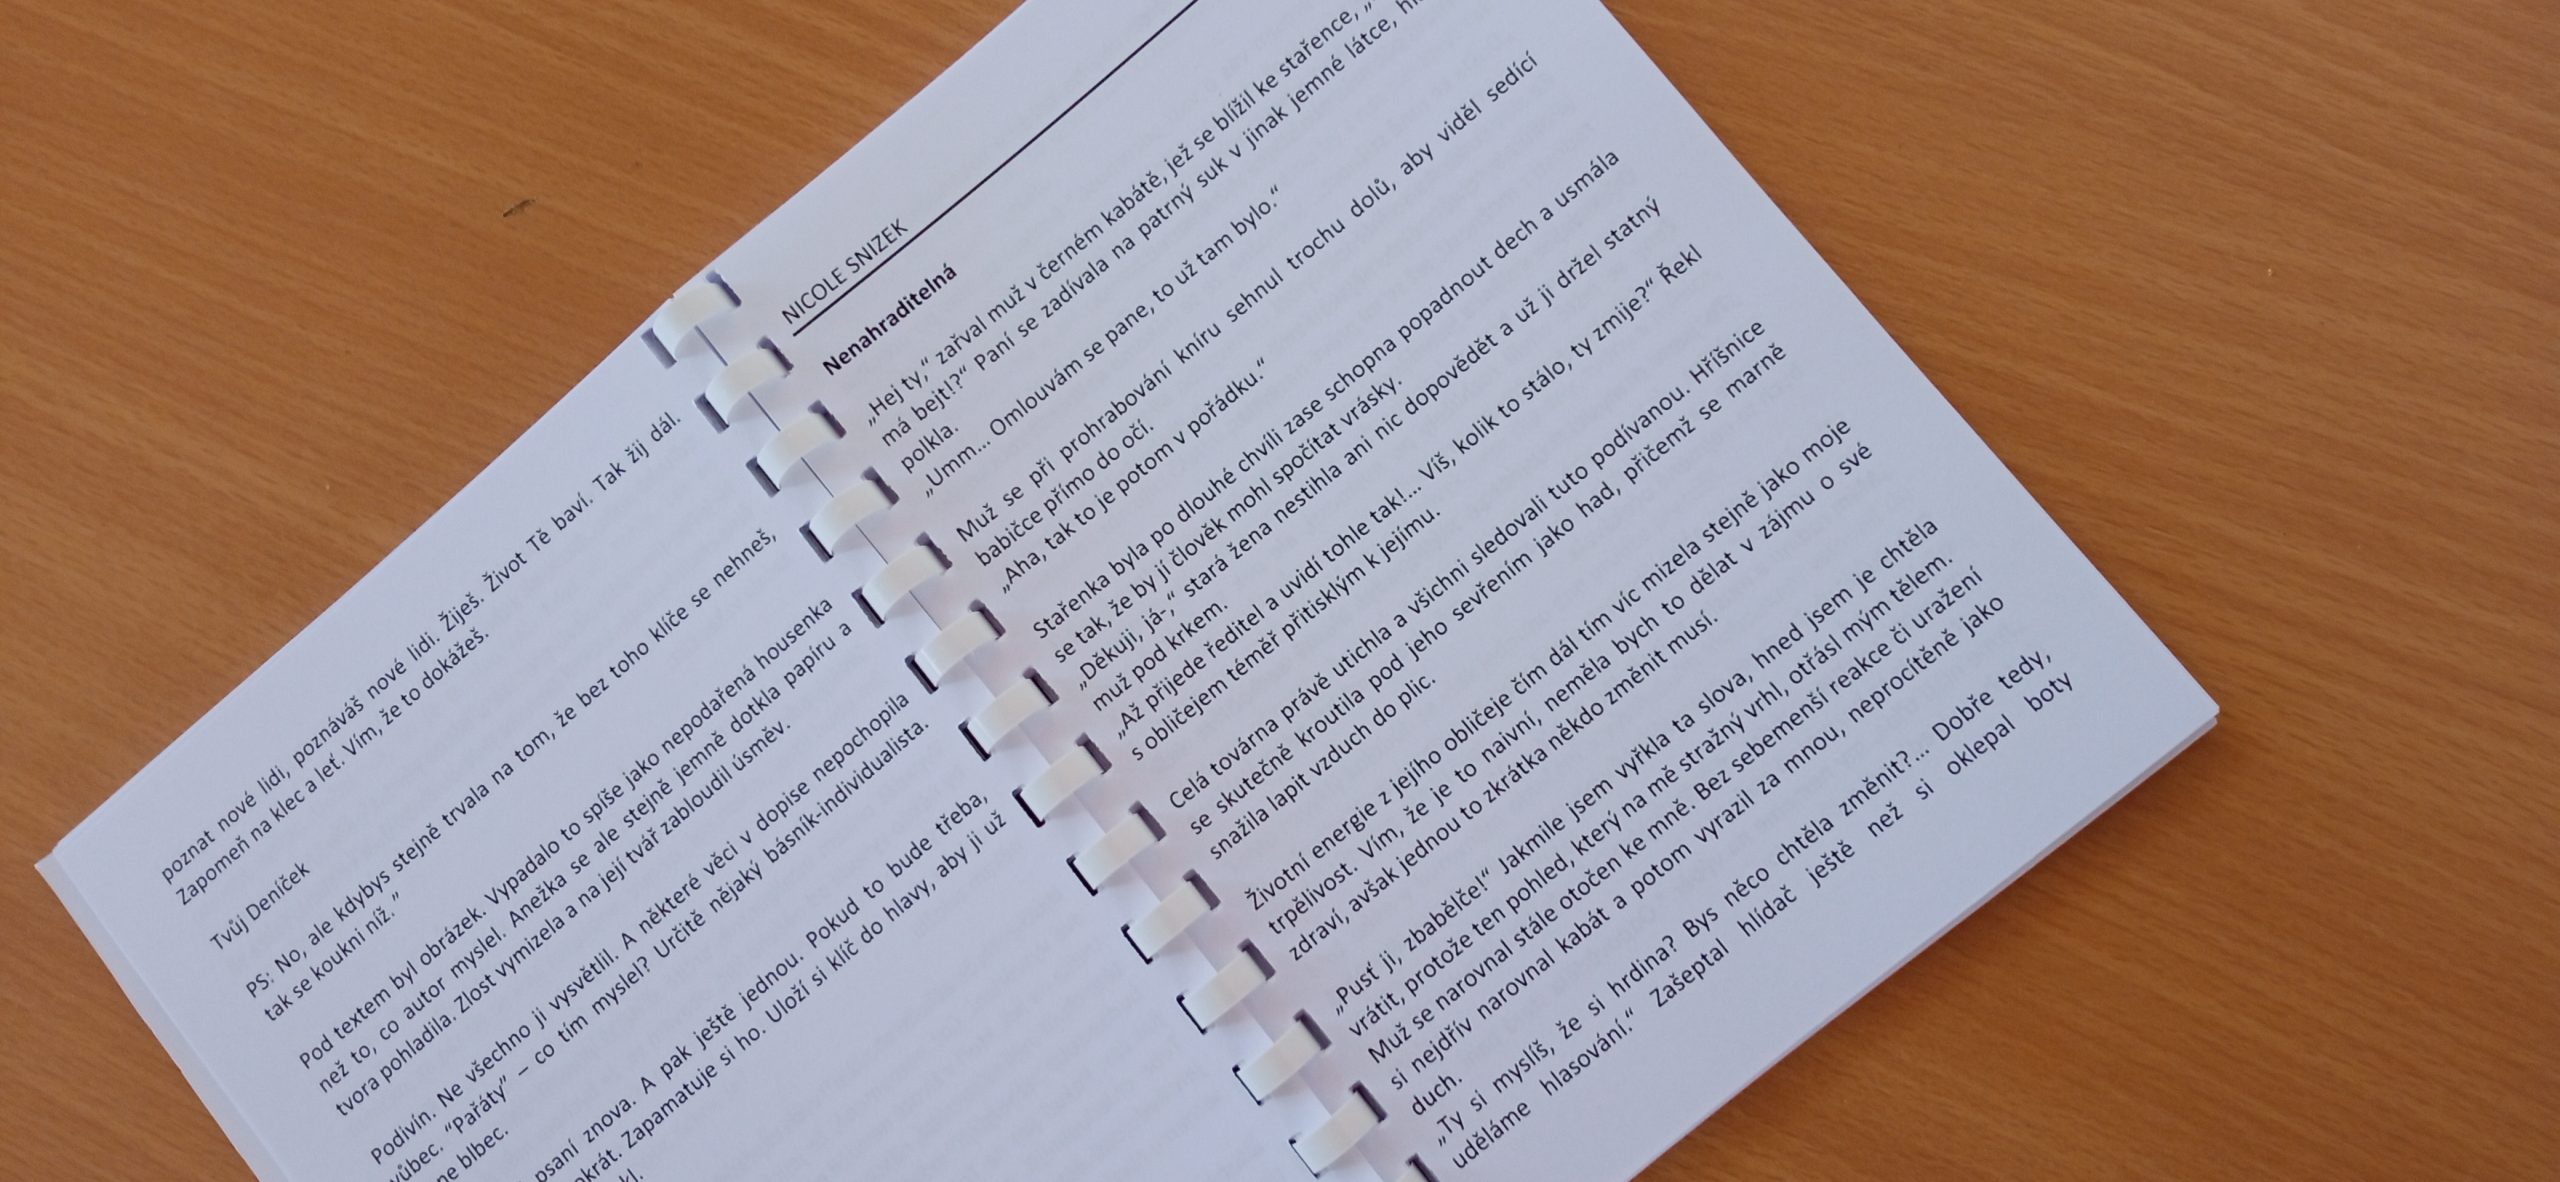 poznat nové lidi, poznáváš nové lidi. Žiješ. Život Tě baví. Tak žij dál.
Zapomeň na klec a leť. Vím, že to dokážeš.
Tvůj Deníček
PS: No, ale kdybys stejně trvala na tom, že bez toho klíče se nehneš,
tak se koukni níž.”
Pod textem byl obrázek. Vypadalo to spíše jako nepodařená housenka
než to, co autor myslel. Anežka se ale stejně jemně dotkla papíru a
tvora pohladila. Zlost vymizela a na její tvář zabloudil úsměv.
Podivín. Ne všechno ji vysvětlil. A některé věci v dopise nepochopila
vůbec. “Pařáty” – co tím myslel? Určitě nějaký básník-individualista.
blbec.
psaní znova. A pak ještě jednou. Pokud to bude třeba,
Zapamatuje si ho. Uloží si klíč do hlavy, aby ji už
NICOLE SNIZEK
Nenahraditelná
„Hej ty,“ zařval muž v černém kabátě, jež se blížil ke stařence,
má bejt!?“ Paní se zadívala na patrný suk v jinak jemné látce,
polkla.
„Umm... Omlouvám se pane, to už tam bylo.“
Muž se při prohrabování kníru sehnul trochu dolů, aby viděl sedící
babičce přímo do očí.
„Aha, tak to je potom v pořádku.“
Stařenka byla po dlouhé chvíli zase schopna popadnout dech a usmála
se tak, že by jí člověk mohl spočítat vrásky.
„Děkuji, já-,“ stará žena nestihla ani nic dopovědět a už ji držel statný
muž pod krkem.
„Až přijede ředitel a uvidí tohle tak!... Víš, kolik to stálo, ty zmije?“ Řekl
s obličejem téměř přitisklým k jejímu.
Celá továrna právě utichla a všichni sledovali tuto podívanou. Hříšnice
se skutečně kroutila pod jeho sevřením jako had, přičemž se marně
snažila lapit vzduch do plic.
Životní energie z jejího obličeje čím dál tím víc mizela stejně jako moje
trpělivost. Vím, že je to naivní, neměla bych to dělat v zájmu o své
zdraví, avšak jednou to zkrátka někdo změnit musí.
„Pusť ji, zbabělče!“ Jakmile jsem vyřkla ta slova, hned jsem je chtěla
vrátit, protože ten pohled, který na mě stražný vrhl, otřásl mým tělem.
Muž se narovnal stále otočen ke mně. Bez sebemenší reakce či uražení
si nejdřív narovnal kabát a potom vyrazil za mnou, neprocítěně jako
duch.
„Ty si myslíš, že si hrdina? Bys něco chtěla změnit?... Dobře tedy,
uděláme hlasování.“ Zašeptal hlídač ještě než si oklepal boty